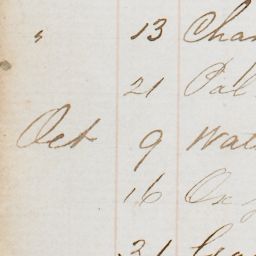 " 13 Chan
21 Pal
Oct 9 Wat
16 Ox
31